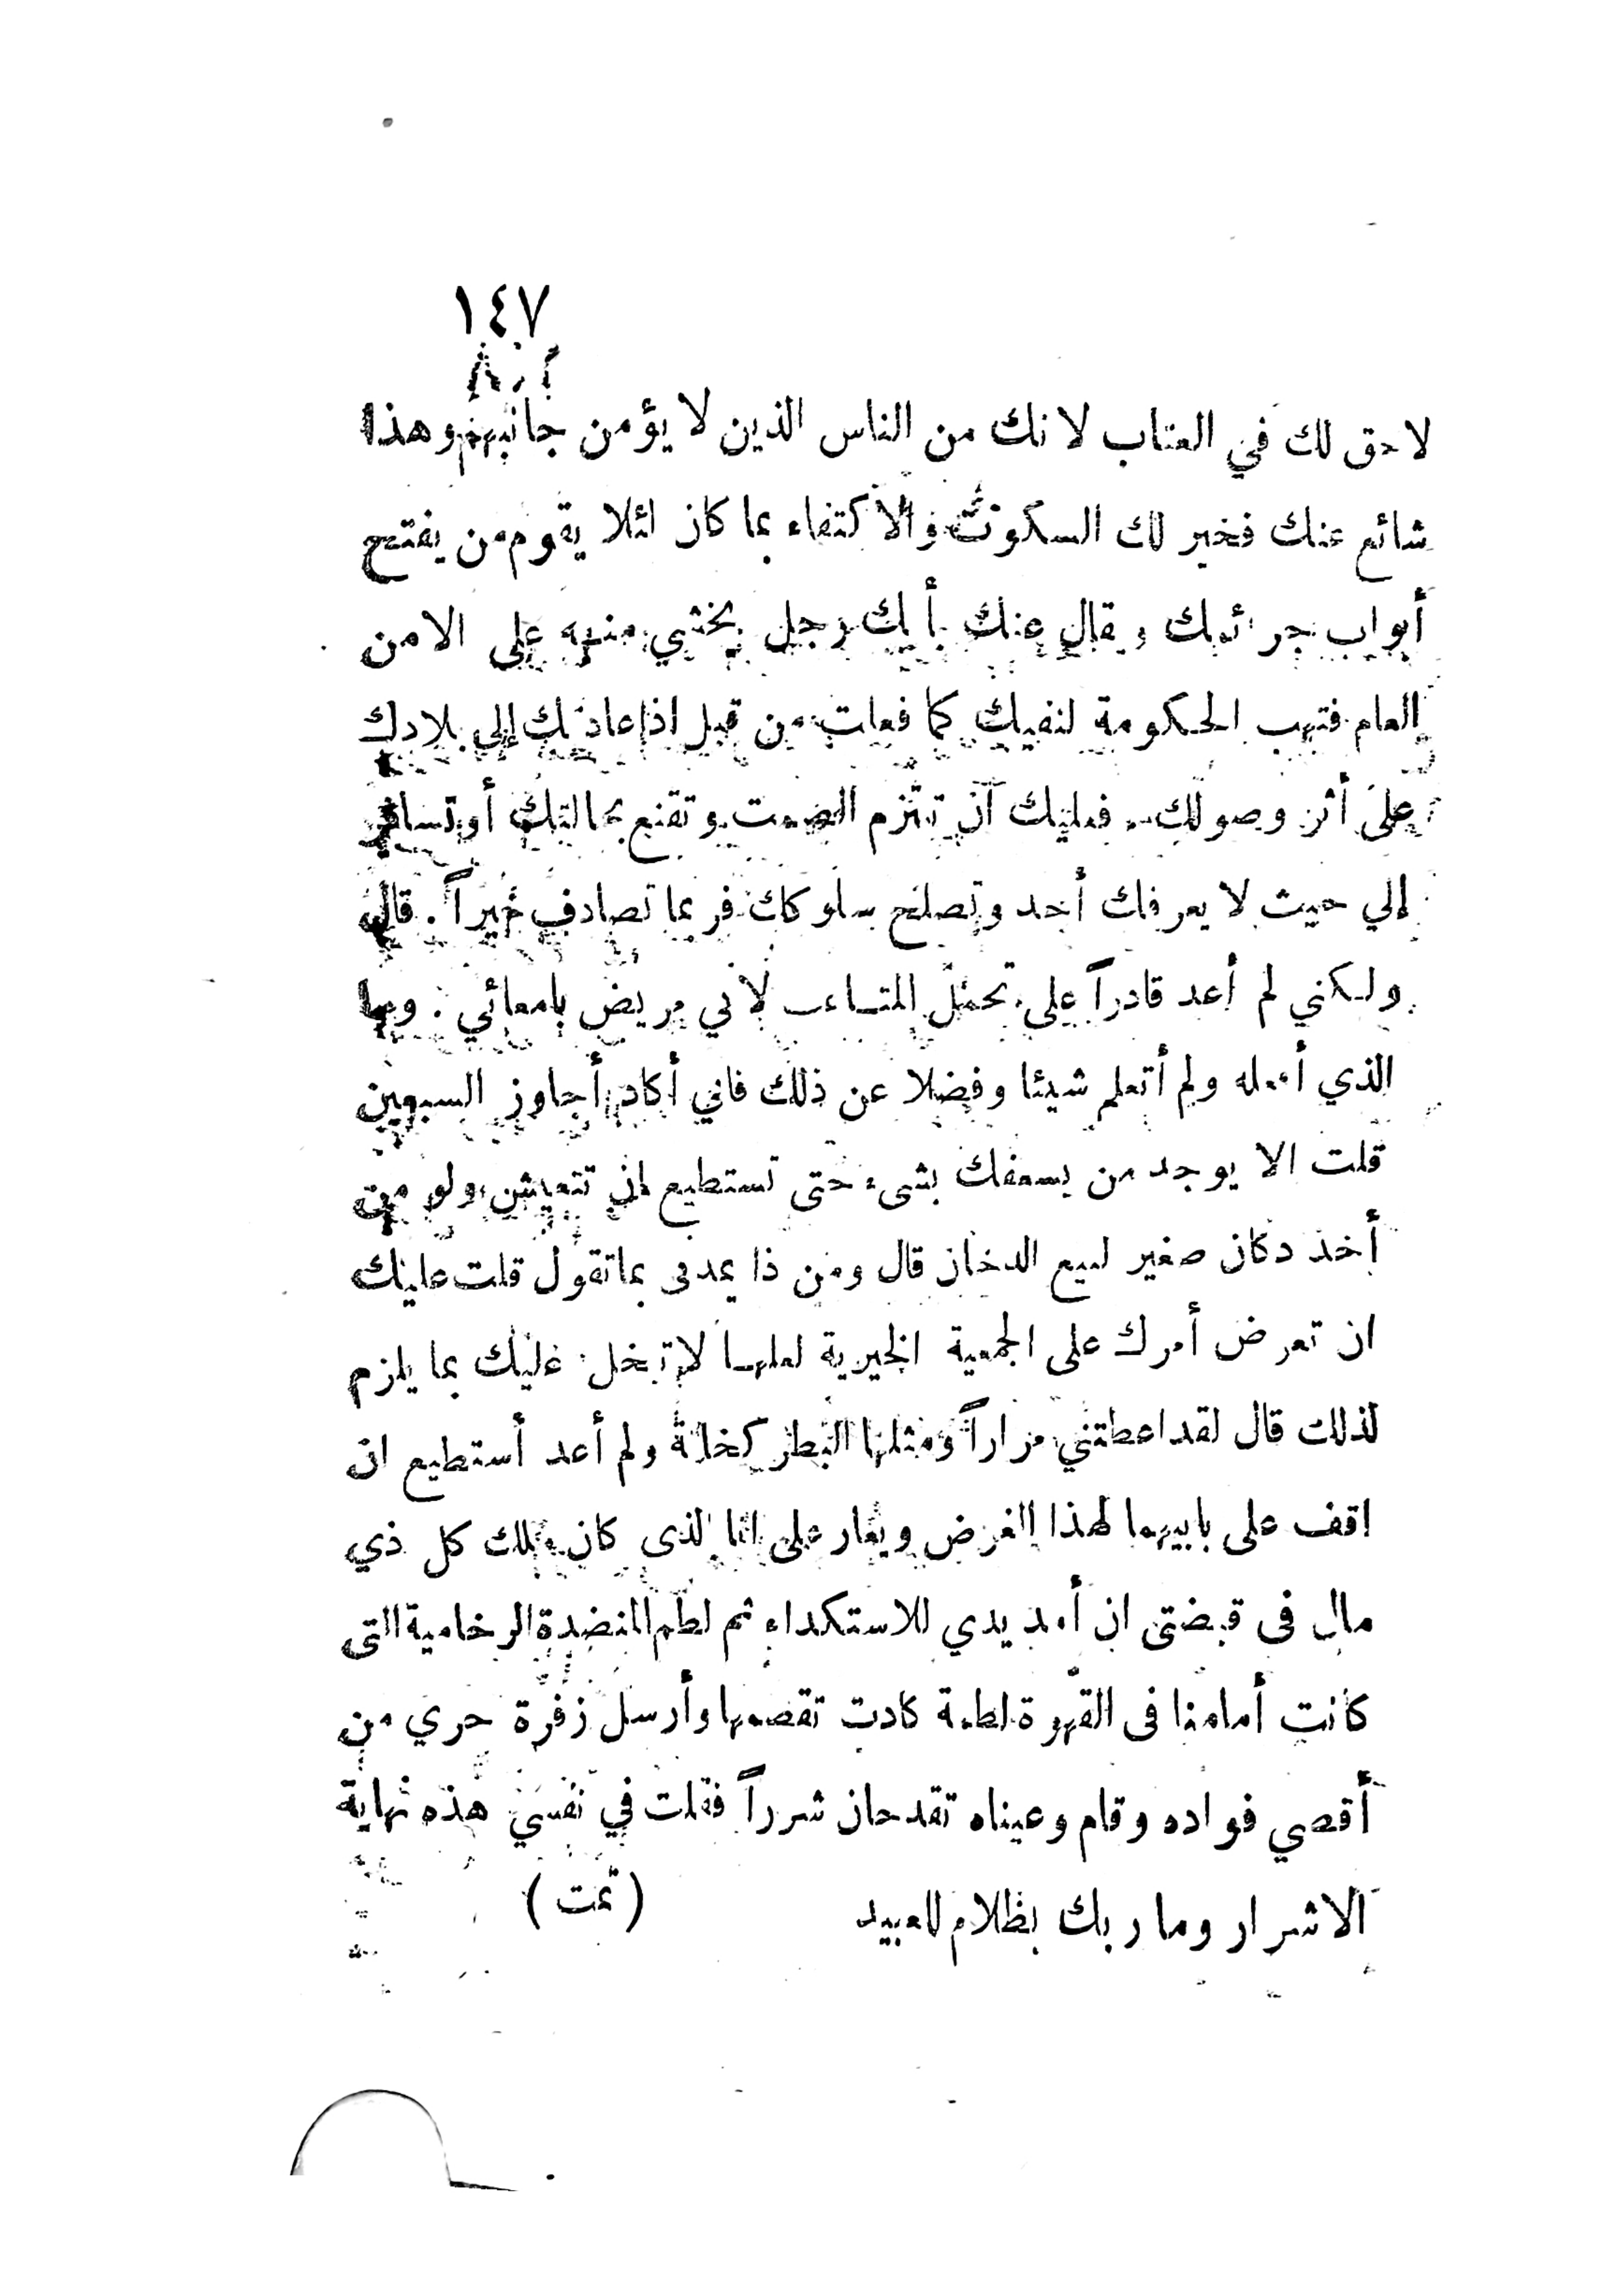 ١٤٧
لا حق لك في العتاب لانك من الناس الذين لا يؤمن جانبهم وهذا
شائع عنك فخير لك السكوت والاكتفاء بما كان لئلا يقوم من يفتح
أبواب جرائمك ويقال عنك بأنك رجل يخشي منه على الامن
العام فتهب الحكومة لنفيك كما فعلت من قبل اذا عاد بك إلي بلادك
على أثر وصولك. فعليك أن تلتزم الصمت وتقنع بحالتك أو تسافر
إلي حيث لا يعرفك أحد وتصلح سلوكك فربما تصادف خيراً. قال
ولكني لم أعد قادراً على تحمل المتاعب لاني مريض بامعائي. وما
الذي أعمله ولم أتعلم شيئا وفضلا عن ذلك فاني أكاد أجاوز السبعين
قلت الا يوجد من يسعفك بشىء حتى تستطيع ان تتعيش ولو من
أخذ دكان صغير لبيع الدخان قال ومن ذا يمدنى بما تقول قلت عليك
ان تعرض أمرك على الجمعية الخيرية لعلها لا تبخل عليك بما يلزم
لذلك قال لقد اعطتني مراراً ومثلها البطركخانة ولم أعد أستطيع ان
اقف على بابيهما لهذا الغرض ويعار على انا الذى كان يملك كل ذي
مال فى قبضتى ان أمد يدي للاستكداء ثم لطم المنضدة الرخامية التى
كانت أمامنا فى القهوة لطمة كادت تقصمها وأرسل زفرة حري من
أقصي فواده وقام وعيناه تقدحان شرراً فقلت في نفسي هذه نهاية
الاشرار وما ربك بظلام للعبيد (تمت)